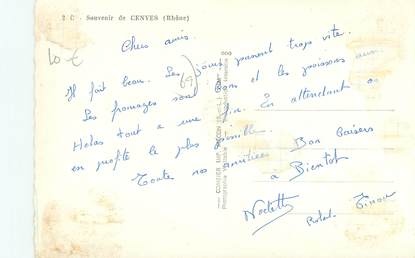 2 C - Souvenir de CENVES (Rhône)
10 €
69
Chers amis.
Il fait beau. Les jours passent trop vite.
Les fromages sont bons et les poissons aussi.
Helas tout a une fin. En attendant on
en profite le plus possible.
Toutes nos amitiées Bon baisers
à Bientot
COMBIER IMP. MACON (S.-&-L.)
Photographie Véritable